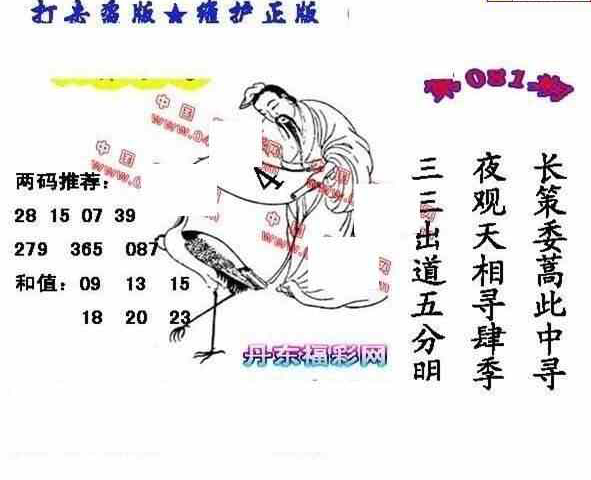 打击盗版★维护正版
第081期
长策委蒿此中寻
夜观天相寻肆季
三三出道五分明
中国
www.04
中国
www.
两码推荐:
28 15 07 39
279 365 087
和值: 09 13 15
18 20 23
4
中国
www
丹东福彩网